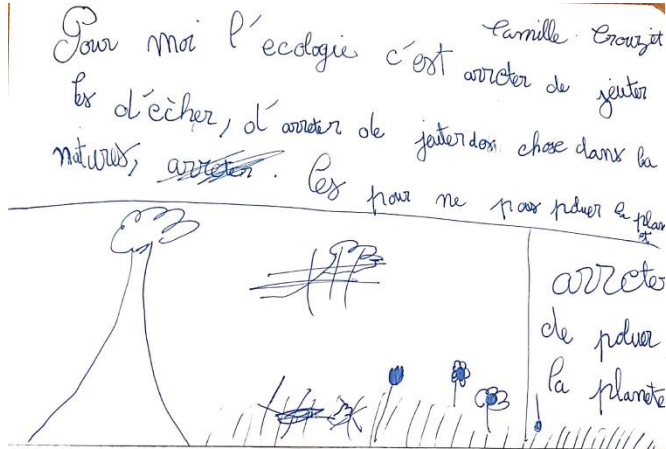 Camille Crouzit
Pour moi l'ecologie c'est arreter de jeuter
les d'êcher, d'arreter de jeuter des chose dans la
natures, arreter. Ces pour ne pas poluer la planet
arreter
de poluer
la planete